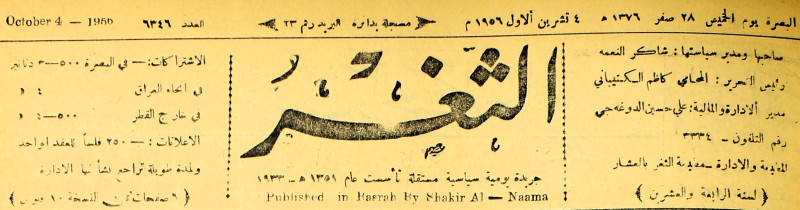 البصرة يوم الخميس ٢٨ صفر ١٣٧٦ هـ ٤ تشرين الاول ١٩٥٦ م ﴿ مسجلة بدائرة البريد رقم ٢٣ ﴾ العدد ٦٣٤٦ October 4 — 1956
صاحبها ومدير سياستها : شاكر النعمه
رئيس التحرير : المحامي كاظم الكتيباني
مدير الادارة والمالية : علي حسين الدوغه جي
رقم التلفون – ٣٣٣٤
والادارة – الثغر بالعشار
﴿ لسنة الرابعة والعشرين ﴾
الثغر
جريدة يومية سياسية مستقلة تأسست عام ١٣٥١ هـ – ١٩٣٣
Published in Basrah By Shakir Al — Naama
الاشتراكات :— في البصرة ٥٠٠—٣ دنانير
في انحاء العراق ٤ د
في خارج القطر ٥٠٠—٤ د
الاعلانات :— ٢٥٠ فلساً للعقد الواحد
ولمدة طويلة تراجع بشأنها الادارة
﴿ ٦ صفحات ثمن النسخة ١٠ ﴾